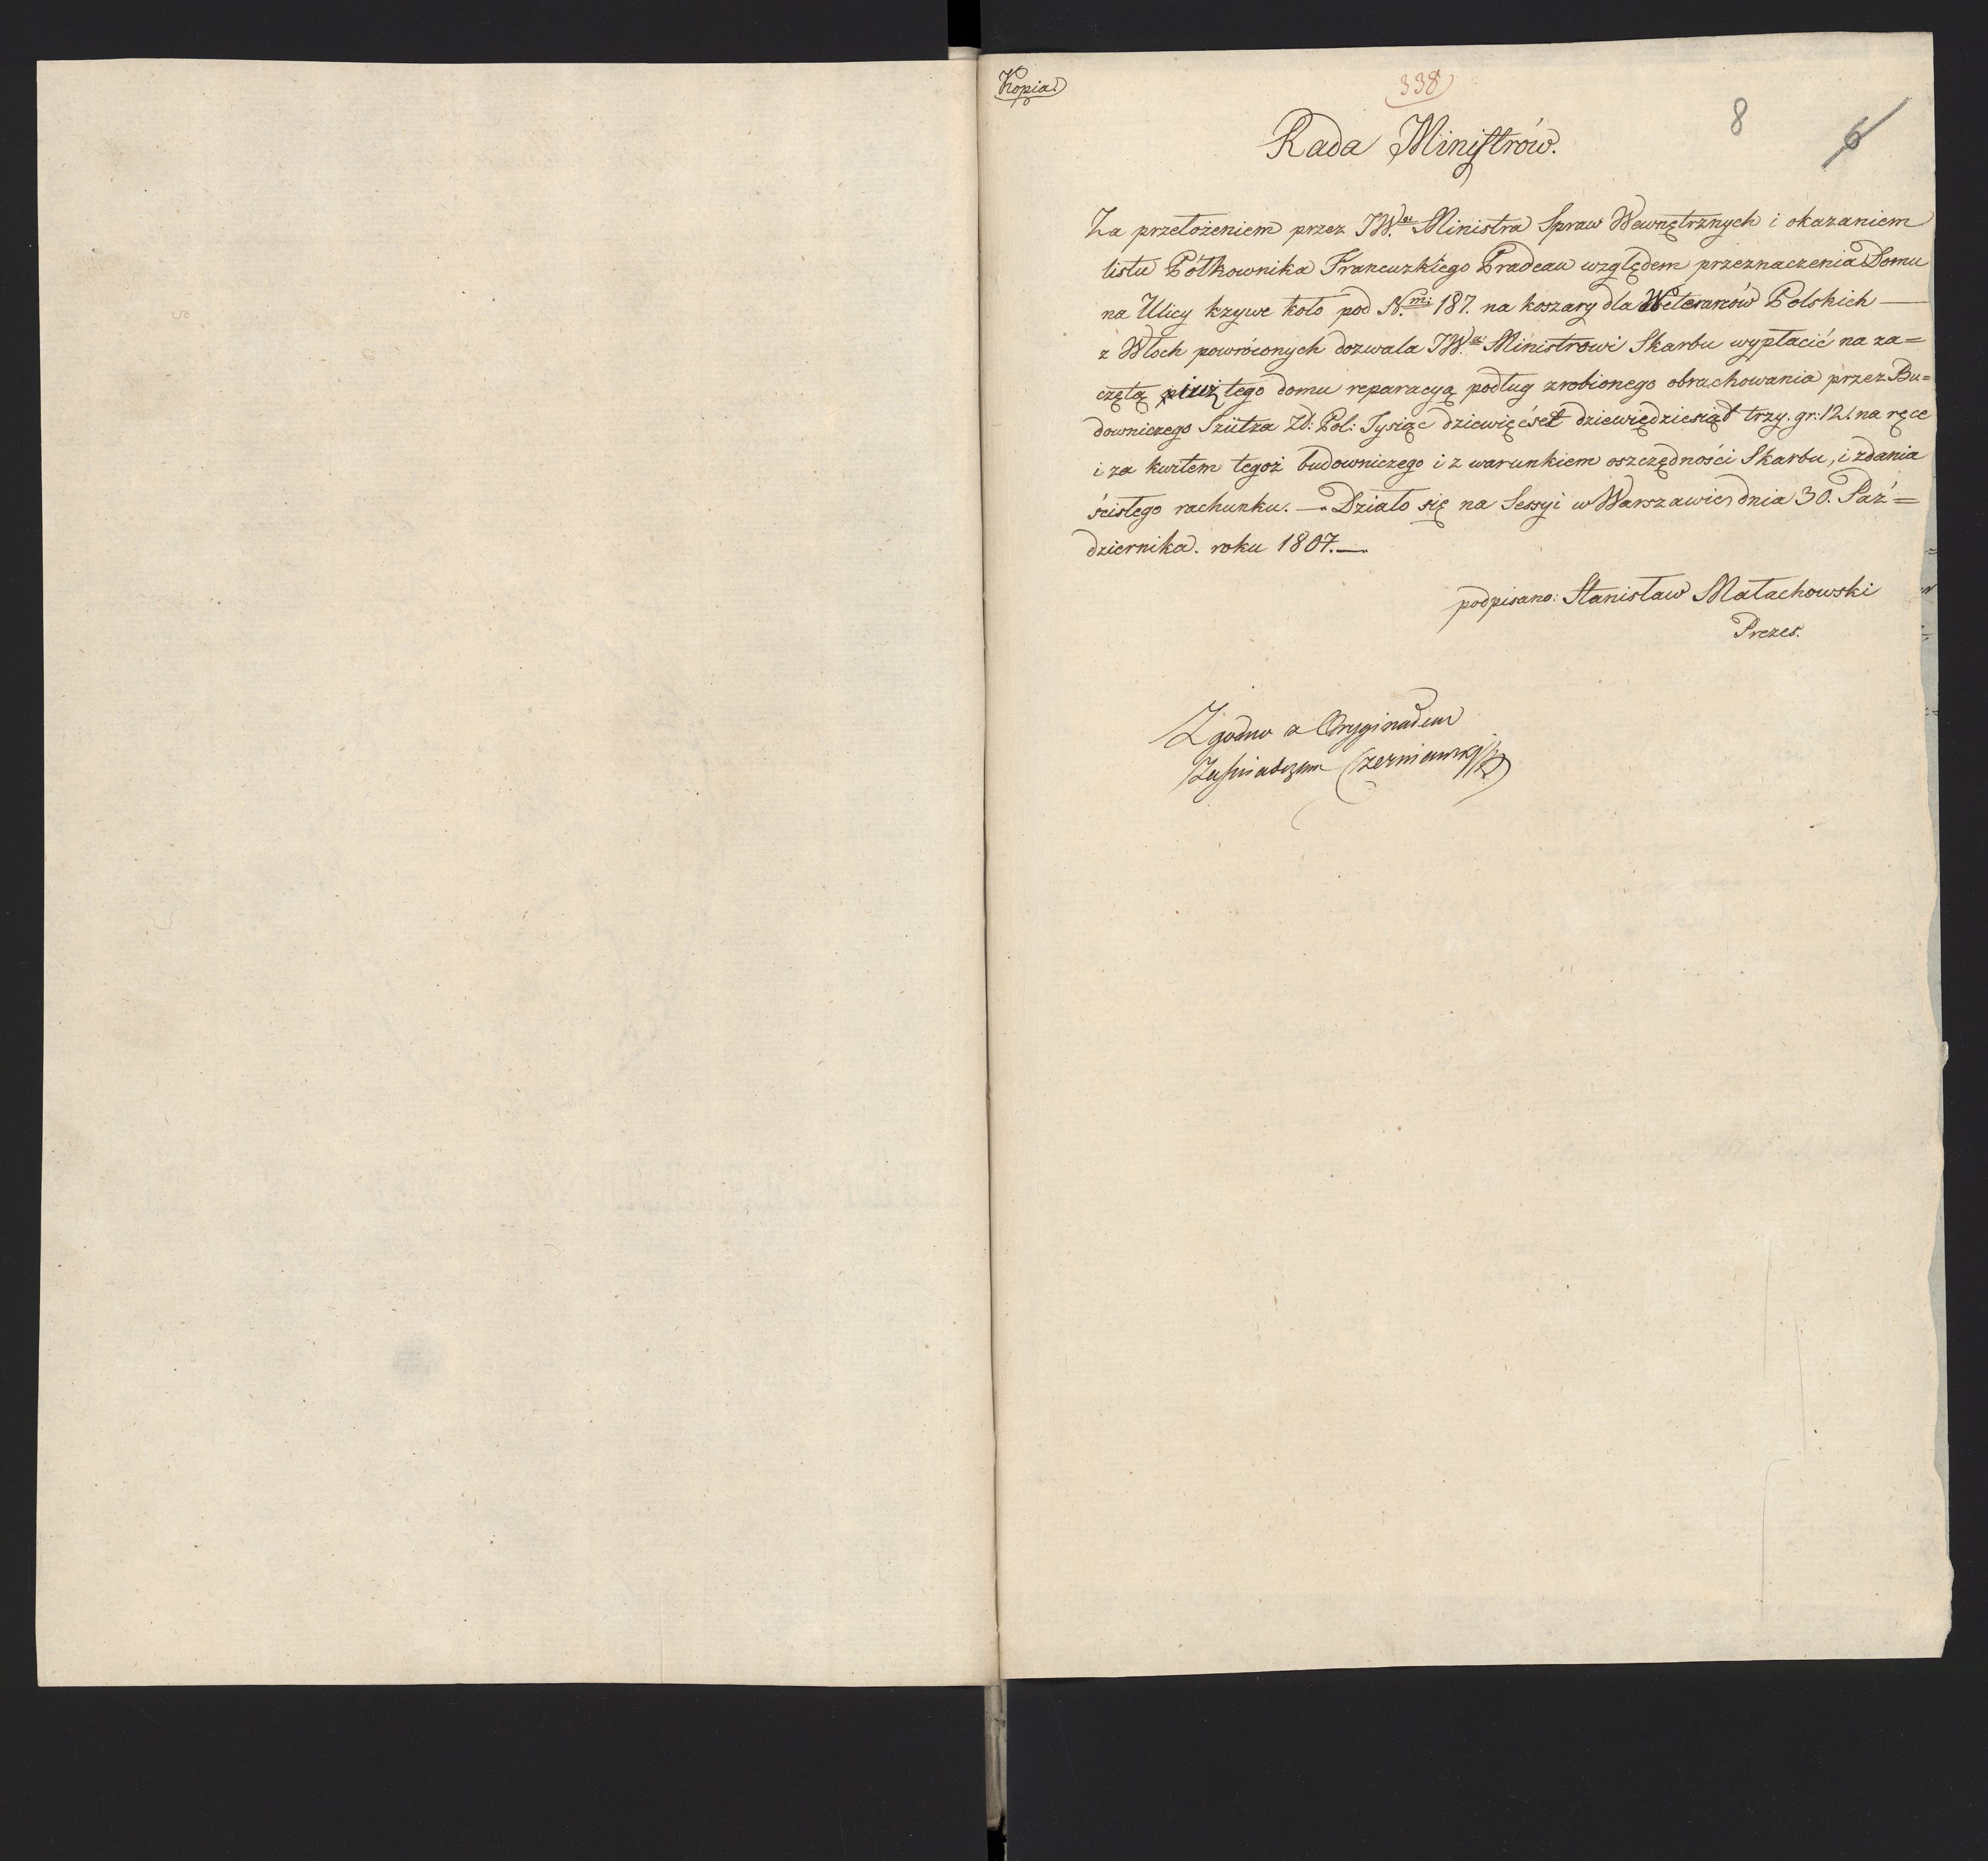 Kopia.
338
8
6
Rada Ministrów.
Za przełożeniem przez JW.go Ministra Spraw Wewnętrznych i okazaniem
listu Półkownika Francuzkiego Pradeau względem przeznaczenia Domu
na Ulicy krzywe koło pod N.mi 187. na koszary dla Weteranów Polskich —
z Włoch powróconych dozwala JW.u Ministrowi Skarbu wypłacić na za=
czętą już tego domu reparacyą podług zrobionego obrachowania przez Bu=
downiczego Szütza Zł: Pol: Tysiąc dziewięćset dziewiędziesiąt trzy. gr: 12. na ręce
i za kwitem tegoż budowniczego i z warunkiem oszczędności Skarbu, i zdania
ścisłego rachunku. — Działo się na Sessyi w Warszawie dnia 30. Paź=
dziernika. roku 1807. —
podpisano: Stanisław Małachowski
Prezes.
Zgodno z Oryginałem
Zaświadczam Czerniawski